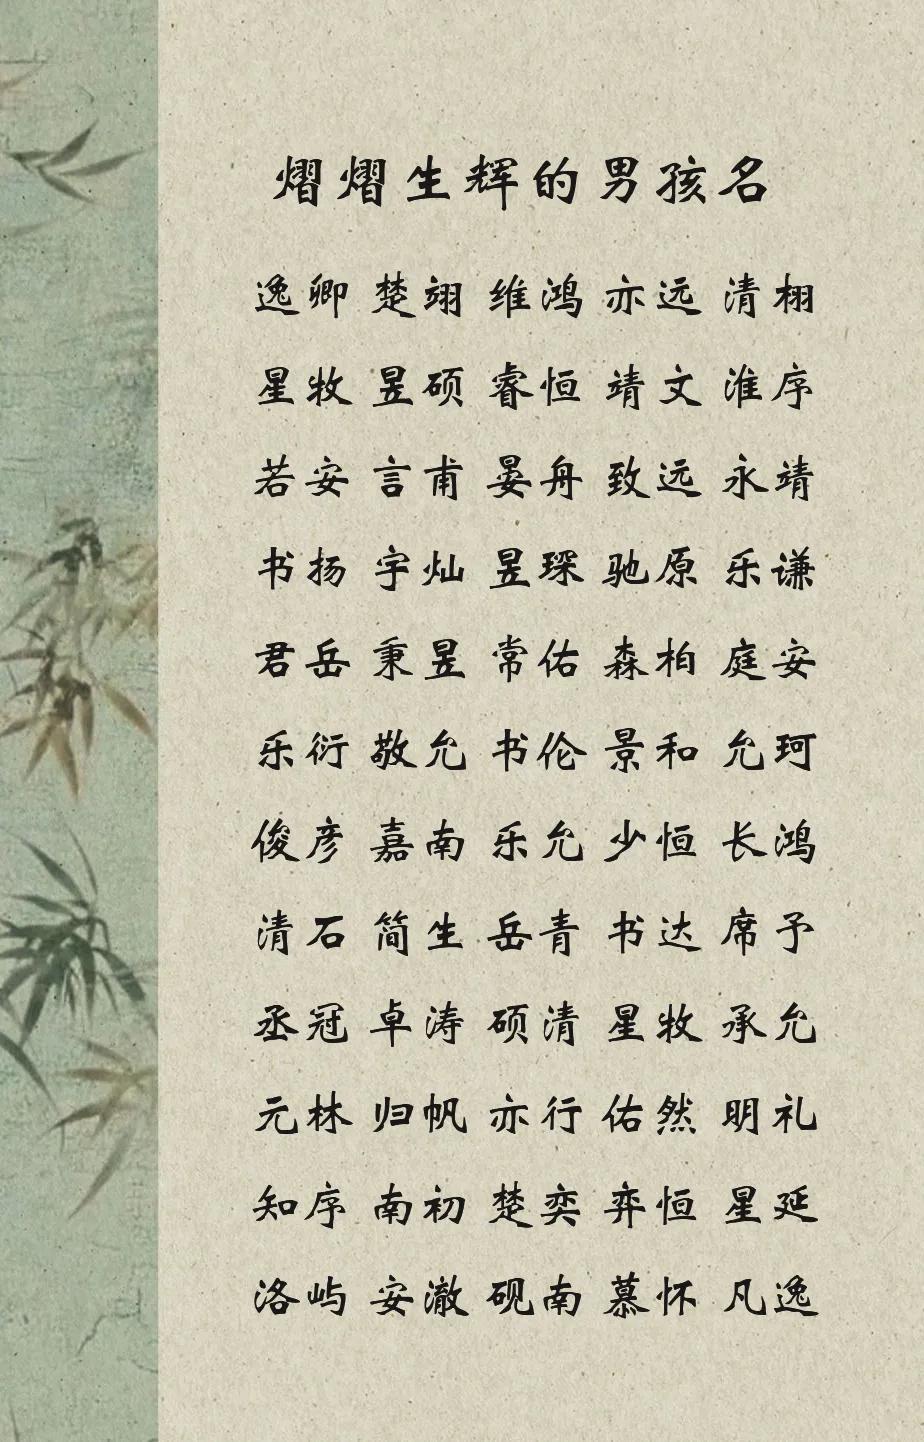 熠熠生辉的男孩名
逸卿 楚翊 维鸿 亦远 清栩
星牧 昱硕 睿恒 靖文 淮序
若安 言甫 晏舟 致远 永靖
书扬 宇灿 昱琛 驰原 乐谦
君岳 秉昱 常佑 森柏 庭安
乐衍 敬允 书伦 景和 允珂
俊彦 嘉南 乐允 少恒 长鸿
清石 简生 岳青 书达 席予
丞冠 卓涛 硕清 星牧 承允
元林 归帆 亦行 佑然 明礼
知序 南初 楚奕 弈恒 星延
洛屿 安澈 砚南 慕怀 凡逸